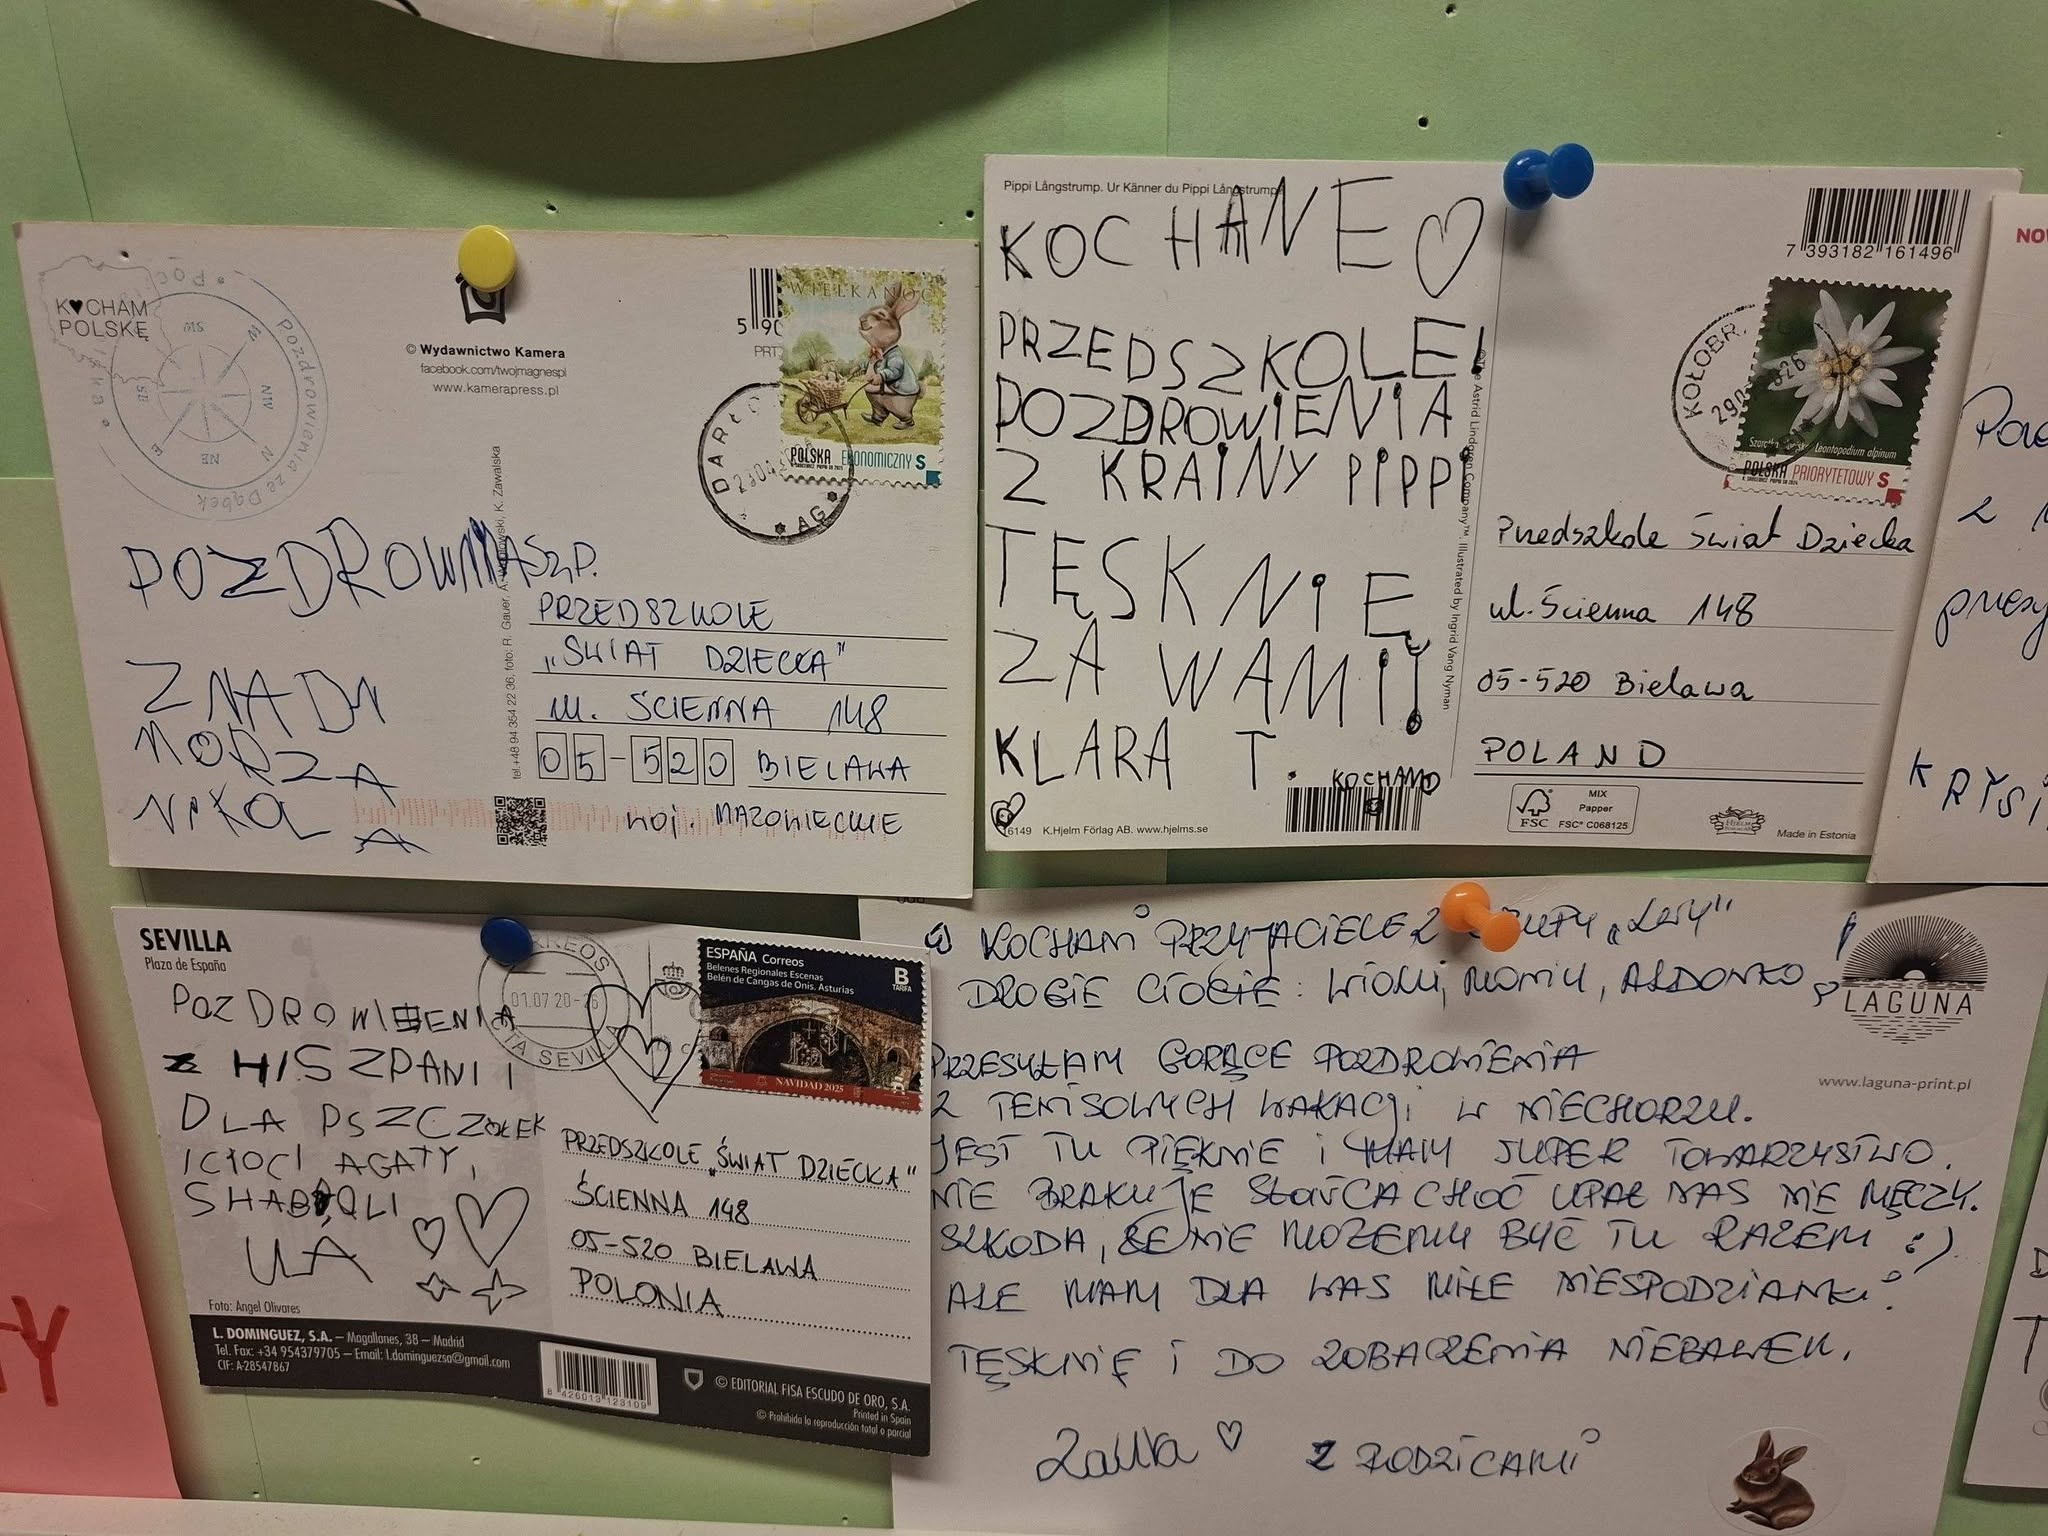 K♥CHAM
POLSKĘ
Pozdrowienia ze Dąbek
SW
W
NW
N
NE
E
SE
© Wydawnictwo Kamera
facebook.com/twojmagnespl
www.kamerapress.pl
5 90
PRT
WIELKANOC
POLSKA EKONOMICZNY S
DARŁO
AG
POZDROWNIA
ZNADN
MORZA
NIKOL
A
tel.+48 94 354 22 36, foto: R. Gauer, K. Zawalska
Sz.P.
PRZEDSZKOLE
„ŚWIAT DZIECKA”
ul. ŚCIENNA 148
05-520 BIELAWA
woj. MAZOWIECKIE
Pippi Långstrump. Ur Känner du Pippi Långstrump?
KOCHANE ♡
PRZEDSZKOLE!
POZDROWIENIA
Z KRAINY PIPPI
TĘSKNIE
ZA WAMI!
KLARA T.
KOCHAM
16149 K.Hjelm Förlag AB. www.hjelms.se
The Astrid Lindgren Company™. Illustrated by Ingrid Vang Nyman
7 393182 161496
KOŁOBR
Leontopodium alpinum
POLSKA PRIORYTETOWY S
Przedszkole Świat Dziecka
ul. Ścienna 148
05-520 Bielawa
POLAND
FSC
MIX
Papper
FSC® C068125
Made in Estonia
KRYSI
SEVILLA
Plaza de España
POZDROWIENIA
Z HISZPANII
DLA PSZCZÓŁEK
I CIOCI AGATY,
ULA
Foto: Angel Olivares
L. DOMINGUEZ, S.A. – Magallanes, 38 – Madrid
Tel. Fax: +34 954379705 – Email: l.dominguezsa@gmail.com
CIF: A-28547867
CORREOS
01.07 20-26
CTA SEVILLA
ESPAÑA Correos
Belenes Regionales Escenas
Belén de Cangas de Onís. Asturias
B
TARIFA
NAVIDAD 2025
PRZEDSZKOLE „ŚWIAT DZIECKA”
ŚCIENNA 148
05-520 BIELAWA
POLONIA
8 426013 123109
© EDITORIAL FISA ESCUDO DE ORO, S.A.
Printed in Spain
© Prohibida la reproducción total o parcial
KOCHANI PRZYJACIELE Z
DROGIE CIOCIE: WIOLU, MONIU, ALDONKO
PRZESYŁAM GORĄCE POZDROWIENIA
Z TENISOWYCH WAKACJI W NIECHORZU.
JEST TU PIĘKNIE I MAM SUPER TOWARZYSTWO.
NIE BRAKUJE SŁOŃCA CHOĆ UPAŁ NAS NIE MĘCZY.
SZKODA, ŻE NIE MOŻEMY BYĆ TU RAZEM :)
ALE MAM DLA WAS MIŁE NIESPODZIANKI.
TĘSKNIĘ I DO ZOBACZENIA NIEBAWEM.
♡ Z RODZICAMI
LAGUNA
www.laguna-print.pl